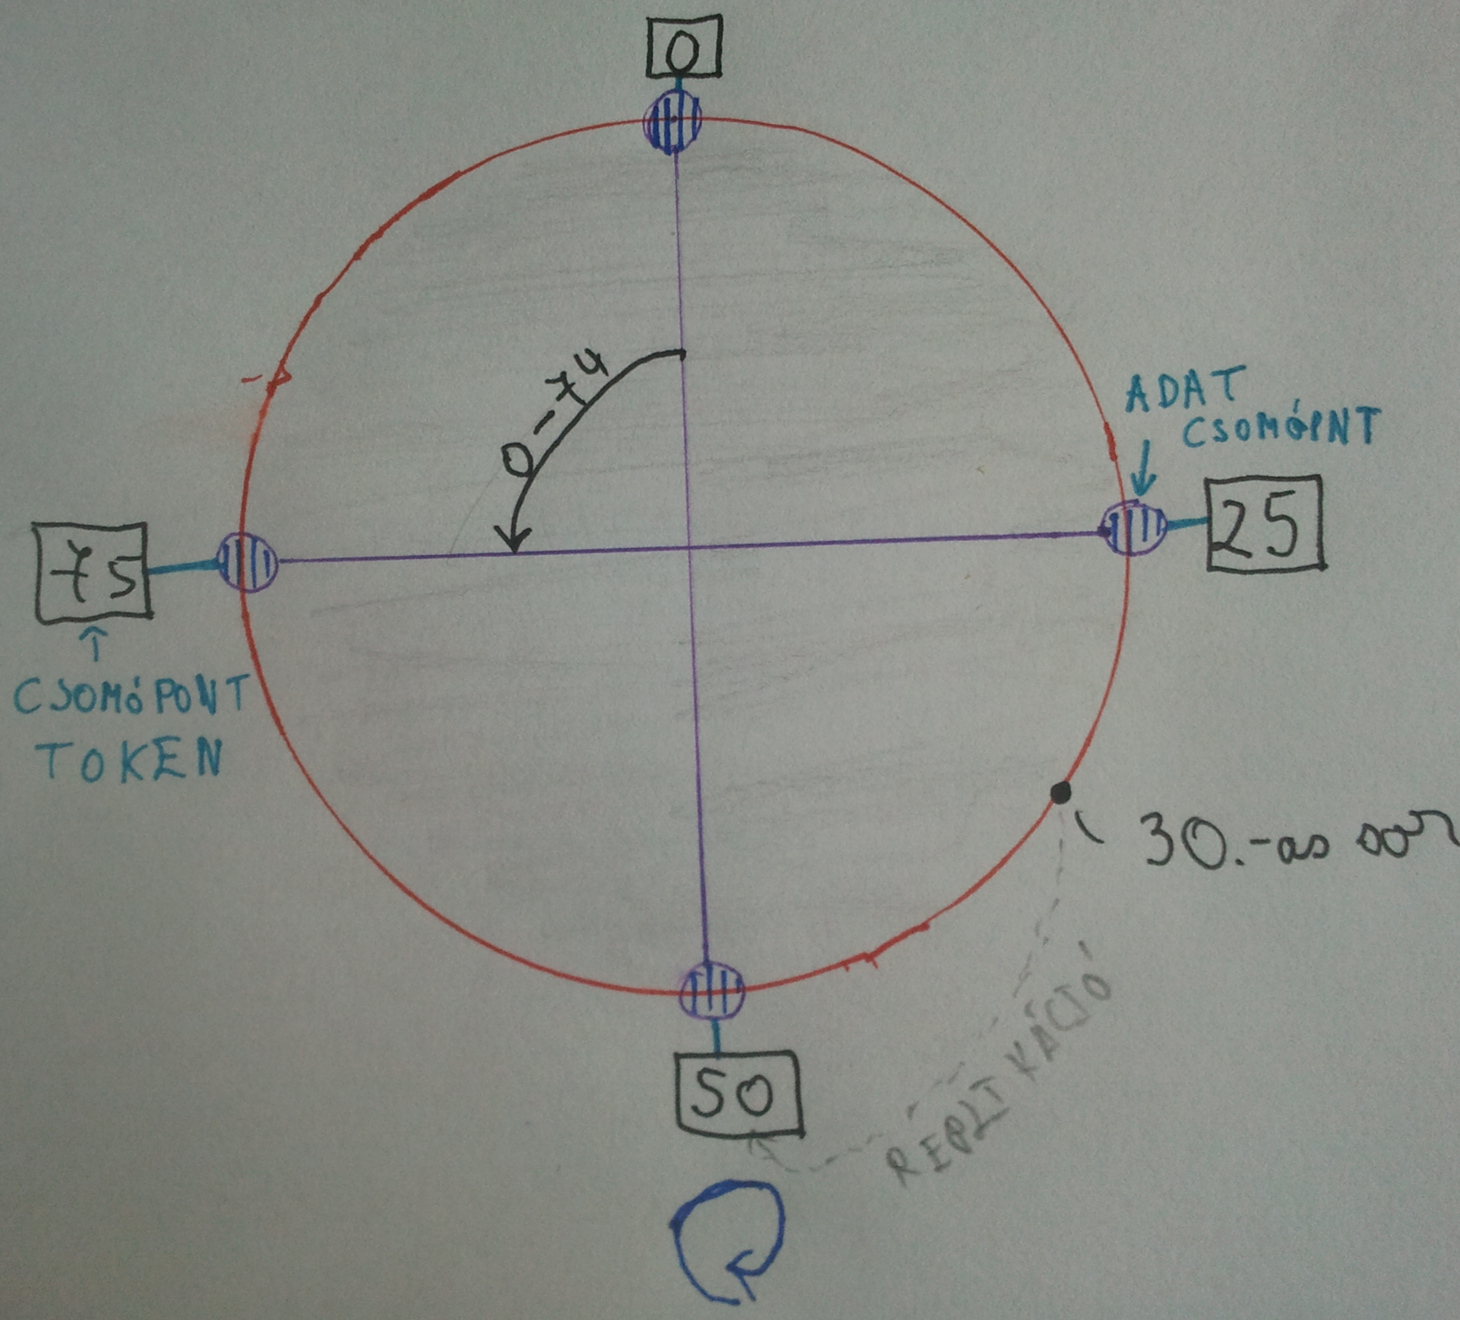 0
0-74
ADAT
CSOMÓPNT
25
75
CSOMÓPONT
TOKEN
30.-as sor
REPLIKÁCIÓ
50